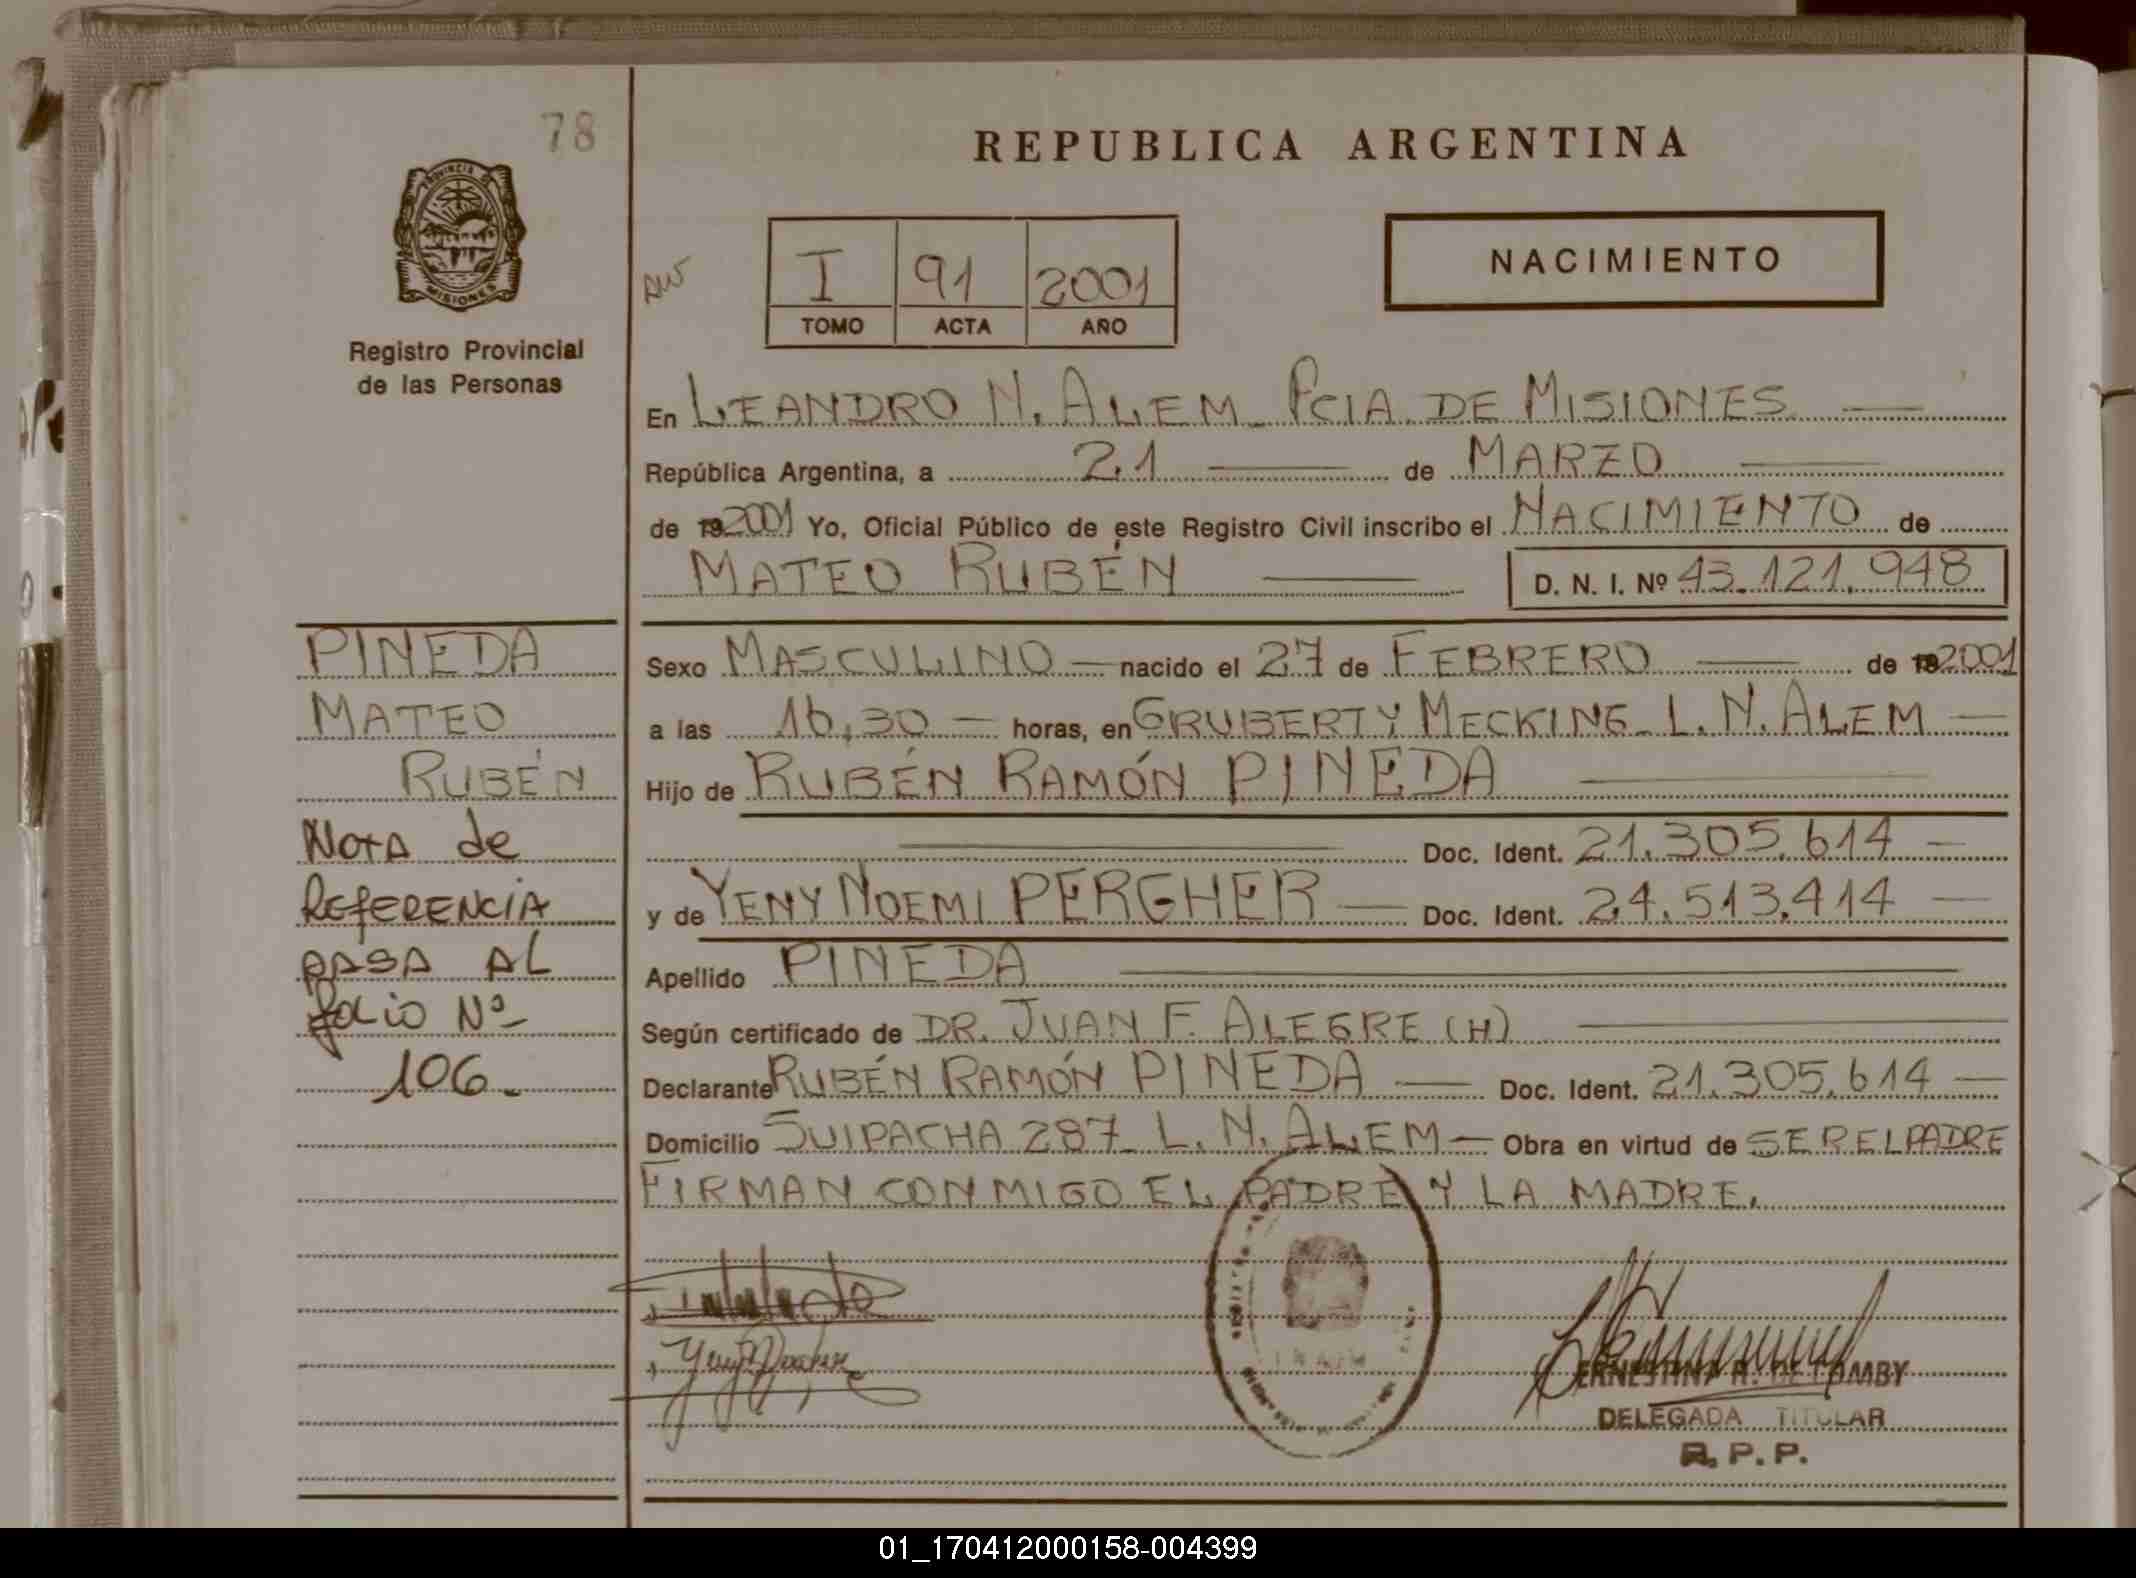 78
PROVINCIA DE
MISIONES
Registro Provincial
de las Personas
REPUBLICA ARGENTINA
I 91 2001
TOMO ACTA AÑO
NACIMIENTO
En LEANDRO N. ALEM - PCIA. DE MISIONES
República Argentina, a 21 de MARZO
de 19 2001 Yo, Oficial Público de este Registro Civil inscribo el NACIMIENTO de
MATEO RUBÉN D. N. I. Nº 43.121.948
PINEDA
MATEO
RUBÉN
NOTA de
REFERENCIA
PASA AL
folio Nº
106.-
Sexo MASCULINO nacido el 27 de FEBRERO de 19 2001
a las 16,30 horas, en GRUBERT Y MECKING - L. N. ALEM
Hijo de RUBÉN RAMÓN PINEDA
Doc. Ident. 21.305.614
y de YENY NOEMI PERGHER Doc. Ident. 24.513.414
Apellido PINEDA
Según certificado de DR. JUAN F. ALEGRE (H)
Declarante RUBÉN RAMÓN PINEDA Doc. Ident. 21.305.614
Domicilio SUIPACHA 287 - L. N. ALEM Obra en virtud de SER EL PADRE
FIRMAN CONMIGO EL PADRE Y LA MADRE.
ERNESTINA R. DE LOMBY
DELEGADA TITULAR
R. P. P.
01_170412000158-004399